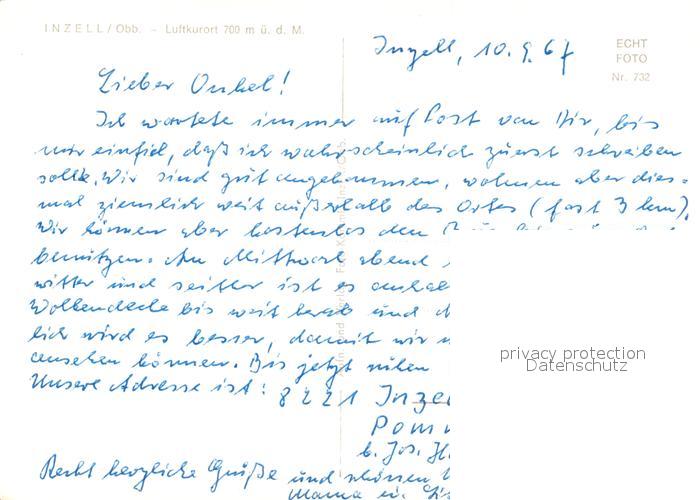 INZELL / Obb. – Luftkurort 700 m ü. d. M.
ECHT
FOTO
Nr. 732
Inzell, 10.9.67
Lieber Onkel!
Ich wartete immer auf Post von Dir, bis
mir einfiel, daß ich wahrscheinlich zuerst schreiben
sollte. Wir sind gut angekommen, wohnen aber dies-
mal ziemlich weit außerhalb des Ortes (fast 3 km).
Wir können aber kostenlos den
benützen. Am Mittwoch abend
witter und seither ist es
Wolkendecke bis weit herab und
lich wird es besser, damit wir
ansehen können. Bis jetzt
Unsere Adresse ist: 8221 Inzell
b. Jos.
Recht herzliche Grüße und schönen
Mama u.
privacy protection
Datenschutz